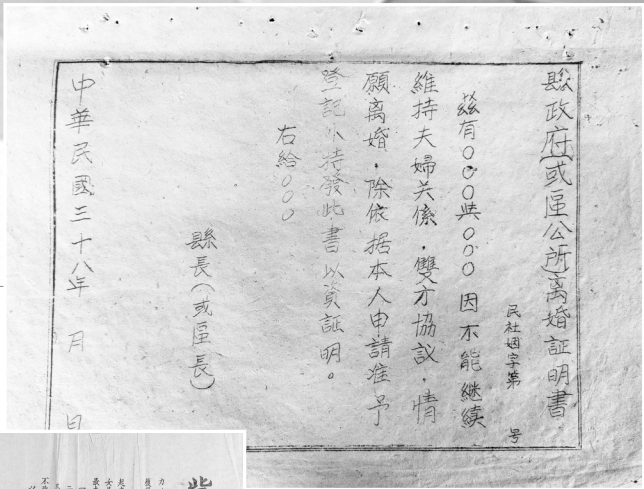 縣政府(或區公所)离婚証明書
民社姻字第 号
茲有○○○與○○○因不能継續
維持夫婦关係，雙方協議，情
願离婚，除依据本人申請准予
登記外特發此書以資証明。
右給○○○
縣長(或區長)
中華民國三十八年 月 日